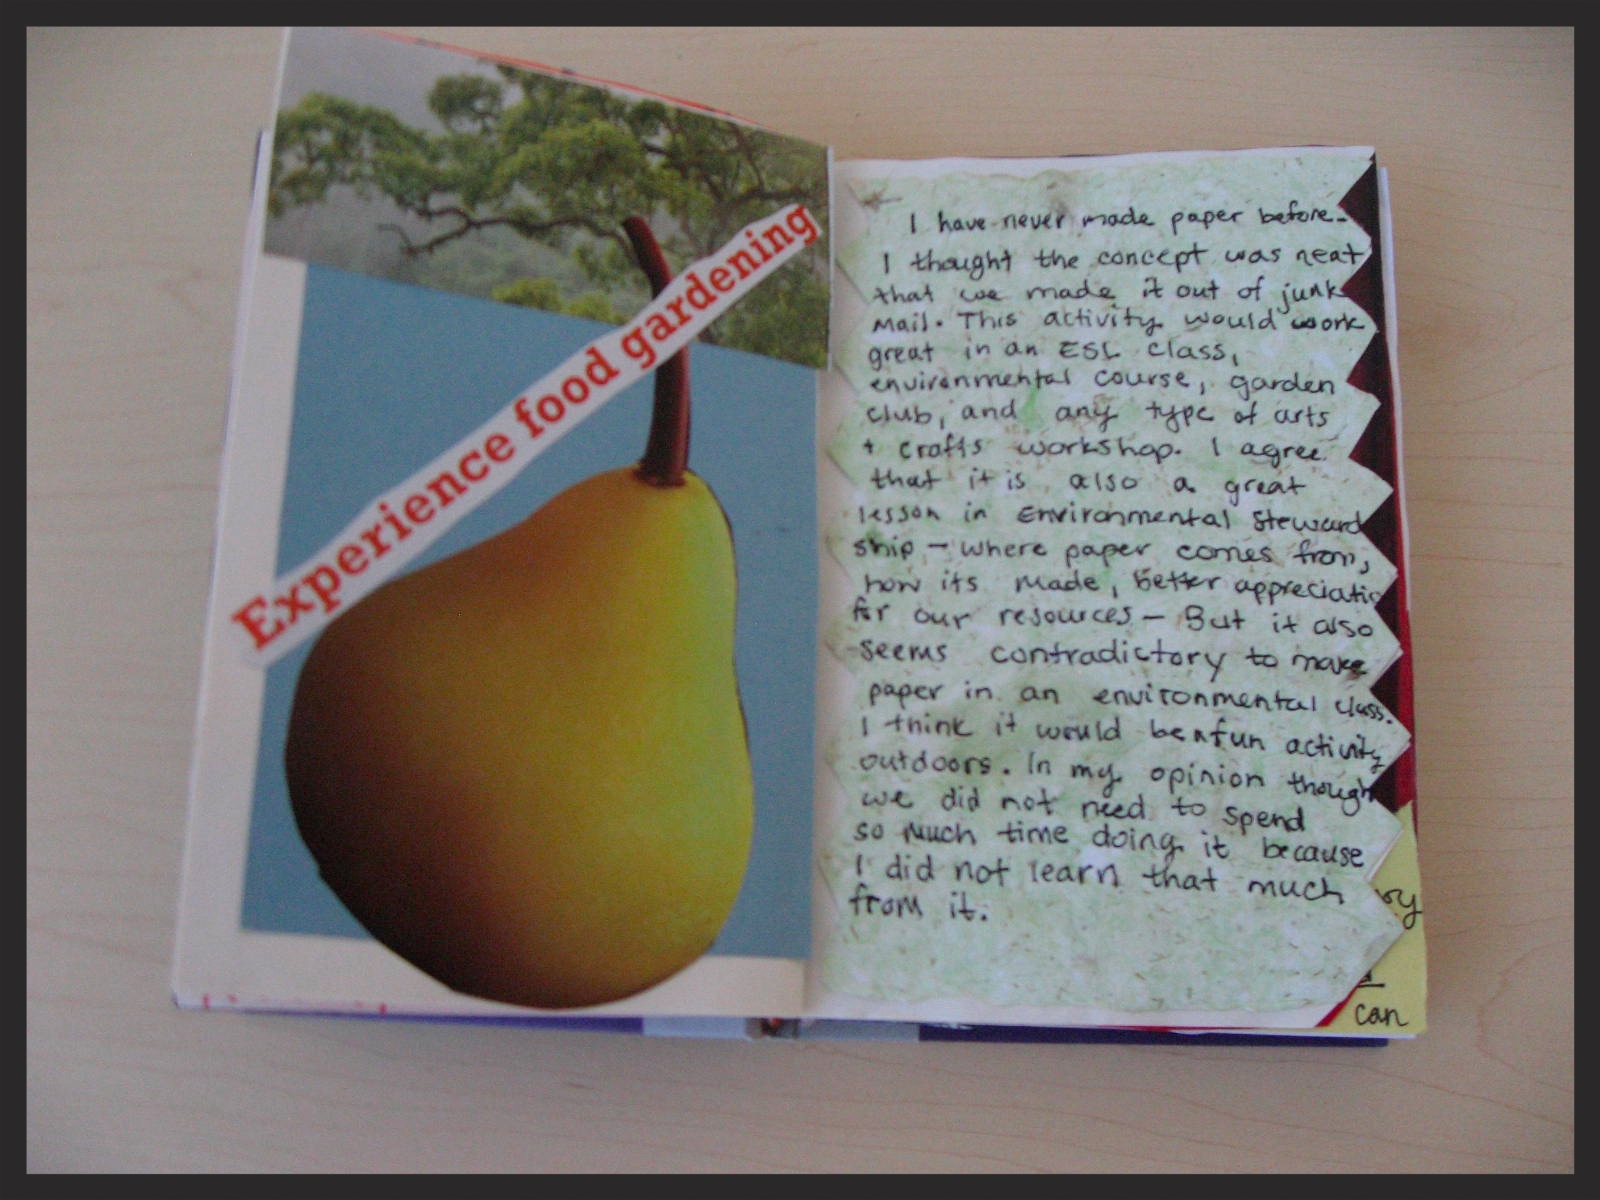 Experience food gardening
I have never made paper before.
I thought the concept was neat
that we made it out of junk
mail. This activity would work
great in an ESL class,
environmental course, garden
club, and any type of arts
+ crafts workshop. I agree
that it is also a great
lesson in Environmental Steward
ship - where paper comes from,
how its made, better appreciatio
for our resources - But it also
seems contradictory to make
paper in an environmental class.
I think it would be a fun activity
outdoors. In my opinion though
we did not need to spend
so much time doing it because
I did not learn that much
from it.
can